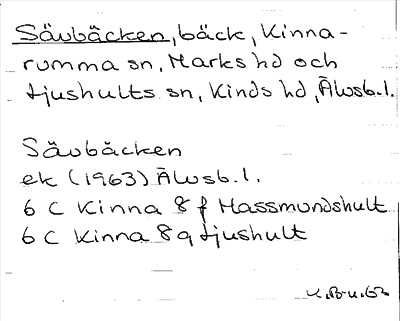 Sävbäcken, bäck, Kinna-
rumma sn, Marks hd och
Ljushults sn, Kinds hd, Älvsb.l.
Sävbäcken
ek (1963) Älvsb.l.
6 C Kinna 8 f Hassmundshult
6 C Kinna 8 g Ljushult